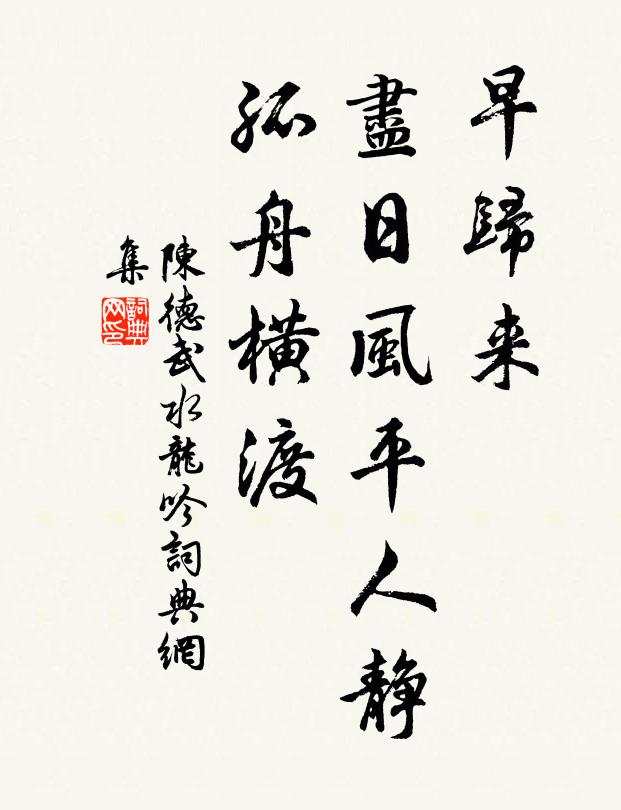 早歸来
盡日風平人静
孤舟橫渡
陳德武水龍吟詞典網
集
詞典
网印